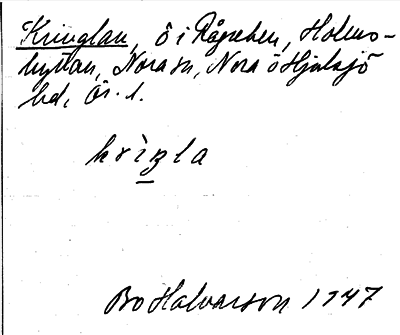 Kringlan, ö i Rågreken, Holms-
hyttan, Nora sn, Nora o Hjulsjö
bd, Ör. l.
krìŋla
Bo Halvarson 1947